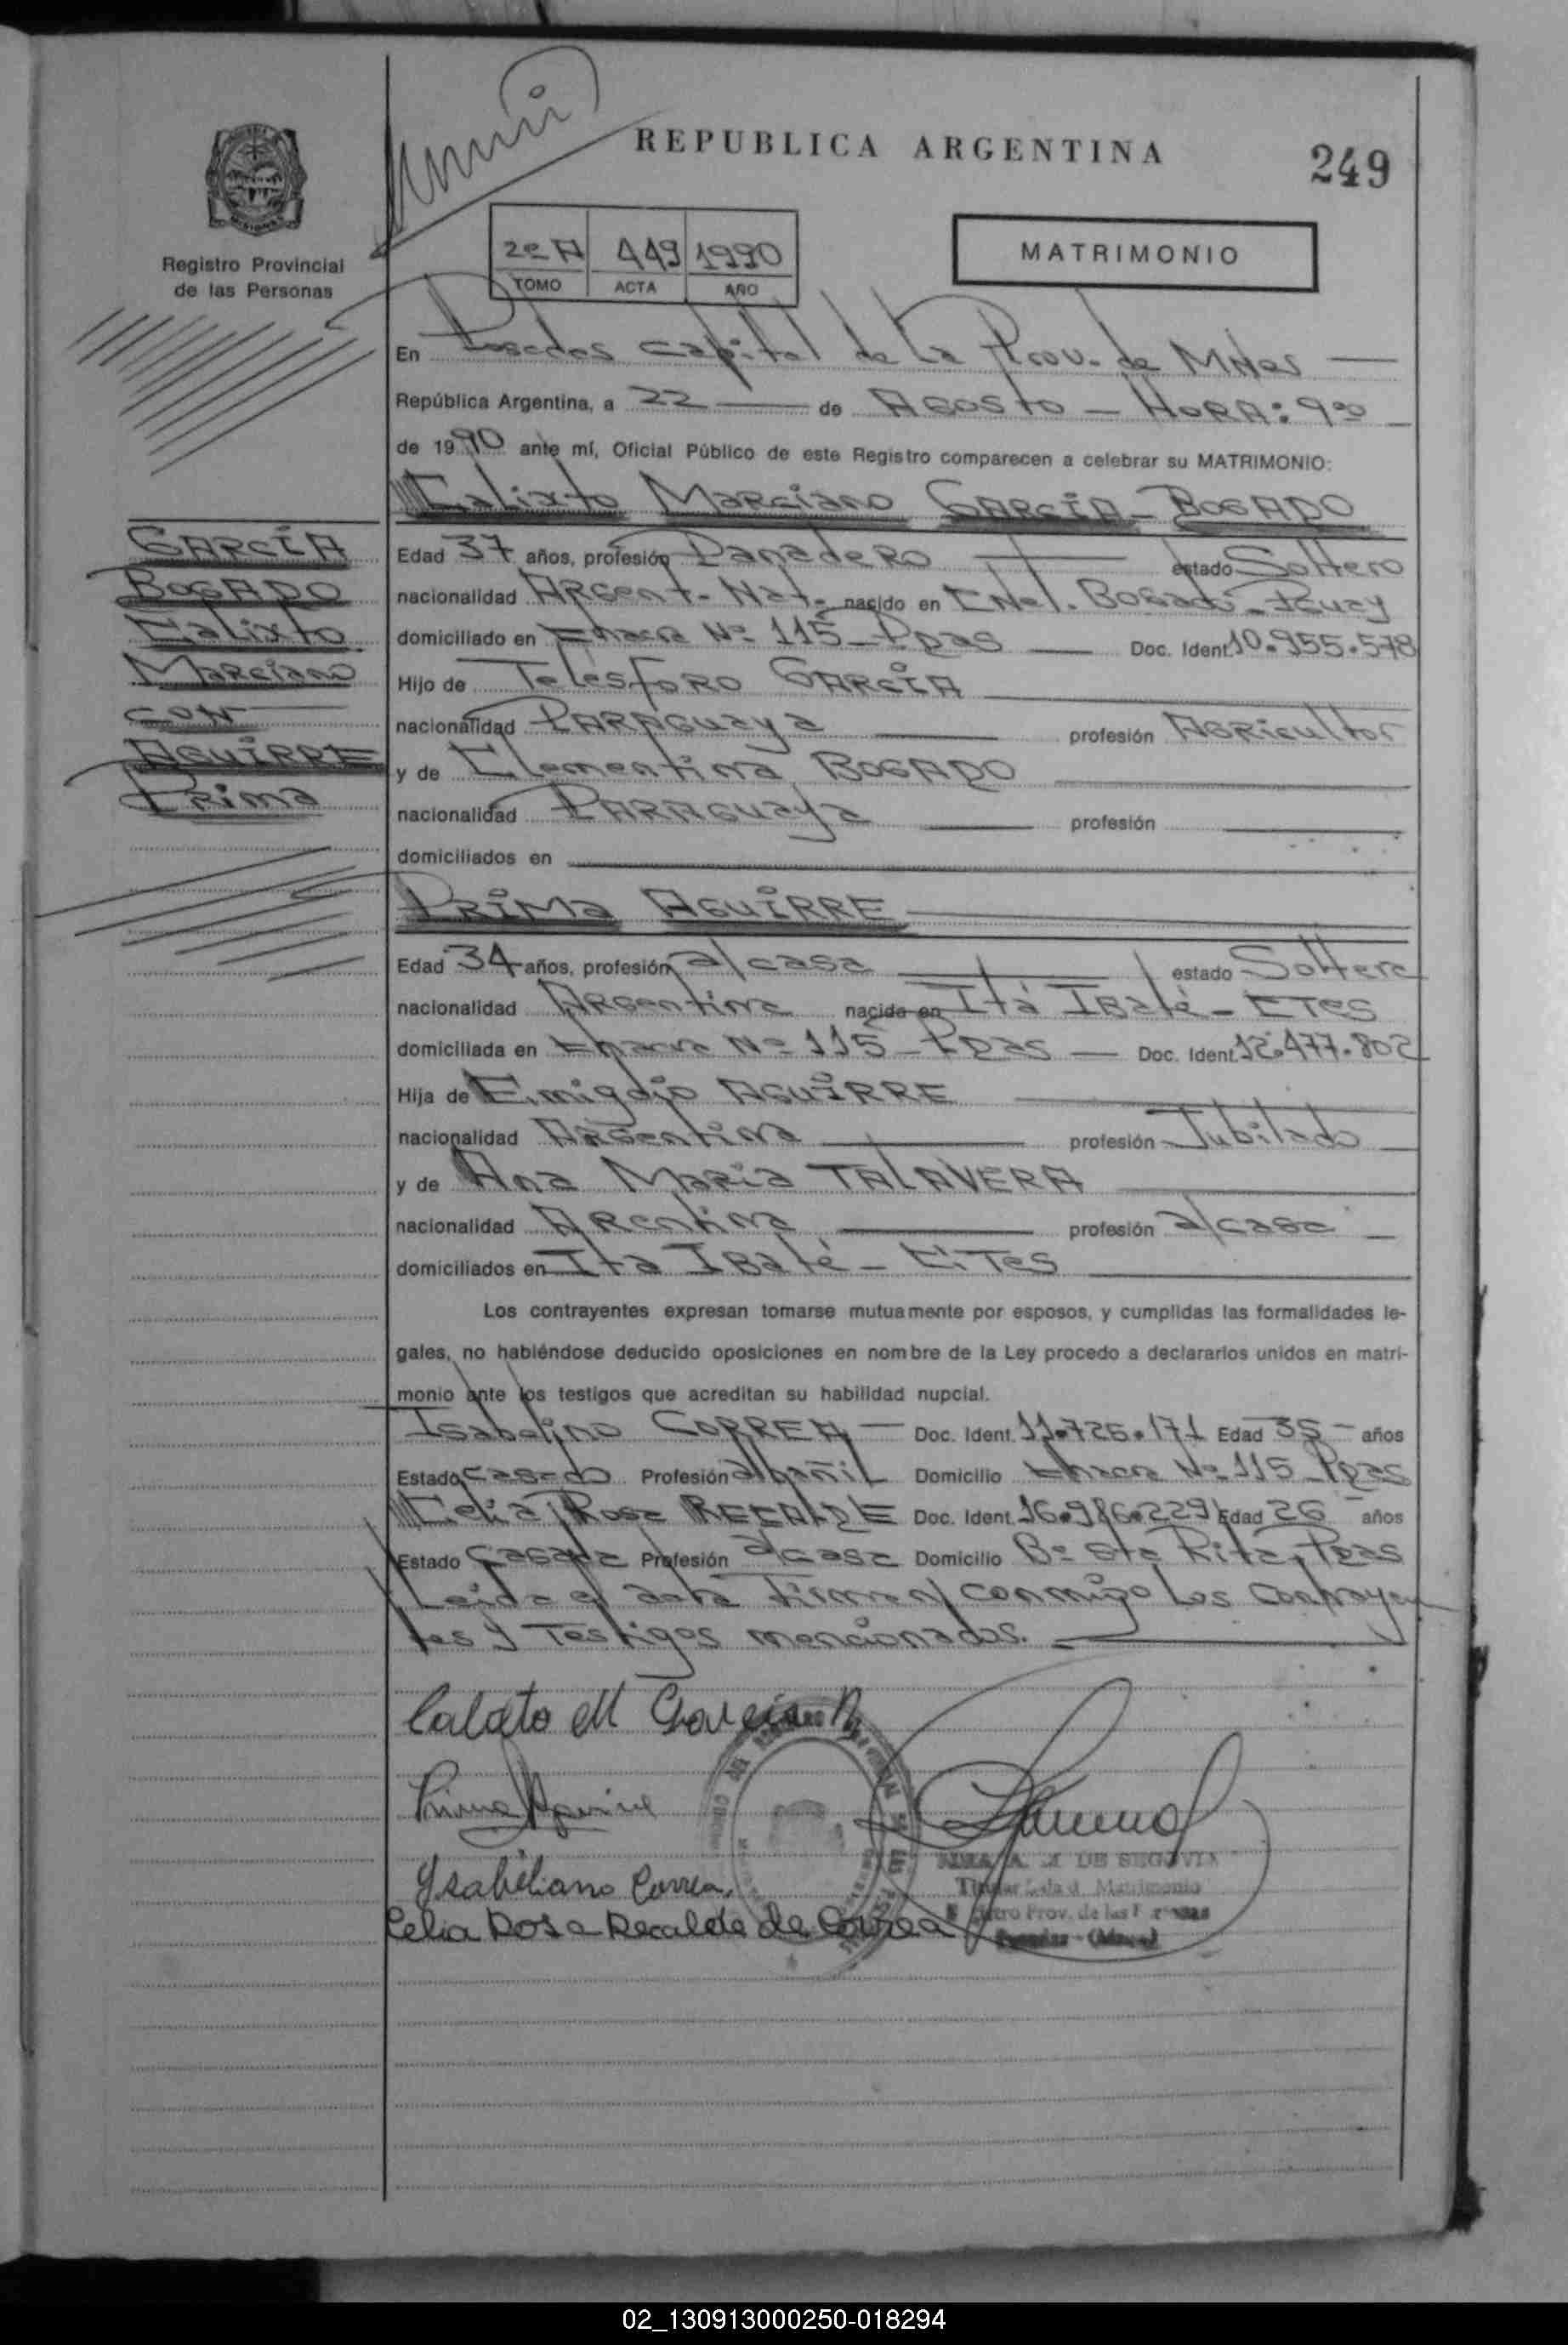 REPUBLICA ARGENTINA
249
Registro Provincial
de las Personas
2º A 449 1990
TOMO ACTA AÑO
MATRIMONIO
En Posadas Capital de la Prov. de Mnes
República Argentina, a 22 de Agosto - HORA: 9:00
de 1990 ante mí, Oficial Público de este Registro comparecen a celebrar su MATRIMONIO:
Calixto Marciano GARCIA - BOGADO
GARCIA
BOGADO
Calixto
Marciano
CON
AGUIRRE
Prima
Edad 37 años, profesión Panadero estado Soltero
nacionalidad Argent. Nat. nacido en CNel. Bogado - Pguay
domiciliado en Chacra Nº 115 - Pdas Doc. Ident. 10.955.578
Hijo de Telesforo GARCIA
nacionalidad PARAGUAYA profesión Agricultor
y de Clementina BOGADO
nacionalidad PARAGUAYA profesión
domiciliados en
PRIMA AGUIRRE
Edad 34 años, profesión a/casa estado Soltera
nacionalidad Argentina nacida en Itá IBaté - CTES
domiciliada en Chacra Nº 115 - Pdas Doc. Ident. 12.477.802
Hija de Emigdio AGUIRRE
nacionalidad Argentina profesión Jubilado
y de Ana María TALAVERA
nacionalidad Arentina profesión a/casa
domiciliados en Ita IBaté - CTes
Los contrayentes expresan tomarse mutuamente por esposos, y cumplidas las formalidades le-
gales, no habiéndose deducido oposiciones en nombre de la Ley procedo a declararlos unidos en matri-
monio ante los testigos que acreditan su habilidad nupcial.
Isabelino CORREA Doc. Ident. 11.726.171 Edad 35 años
Estado Casado Profesión albañil Domicilio Chacra Nº 115 - Pdas
Celia Rosa RECALDE Doc. Ident. 16.986.229 Edad 26 años
Estado Casada Profesión a/casa Domicilio Bº Sta Rita, Pdas
Leida el acta Firman conmigo los contrayen
tes y Testigos mencionados.
Calixto M Garcia B
Prima Aguirre
Ysabeliano Correa,
Celia Rosa Recalde de Correa
DE SEGOVIA
Titular Sala d Matrimonio
Prov. de las
Posadas -
02_130913000250-018294